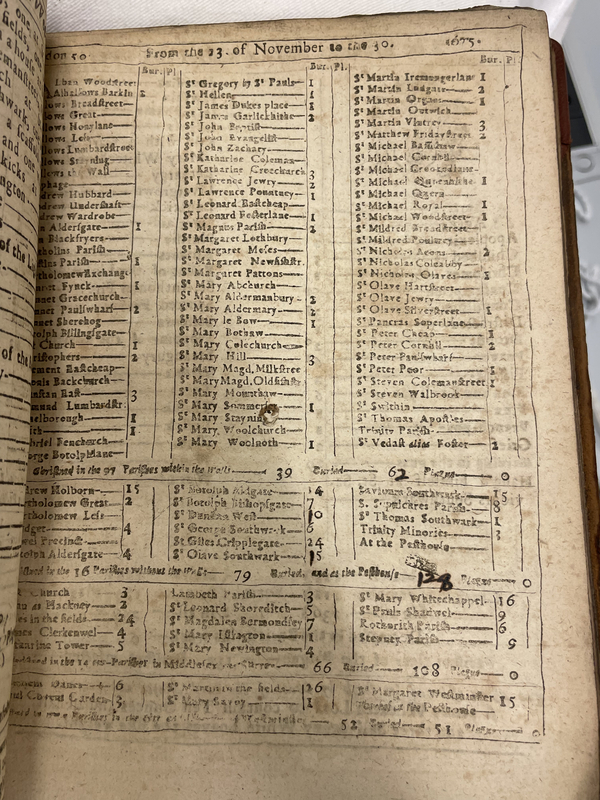 don 50 From the 23. of November to the 30. 1675.
Bur. Pl. Bur. Pl. Bur. P
lban Woodstreet
Alhallows Barkin 2
lows Breadstreet
lows Great
lows Honylane
lows Less
lows Lumbardstreet
lows Stayning
lows the Wall
phage
drew Hubbard
drew Undershaft
drew Wardrobe
n Aldersgate 1
n Blackfryers
tholins Parish
lins Parish 1
tholomew Exchang
net Fynck 1
nnet Gracechurch
nnet Paulswharf 2
nnet Sherehog
otolph Billingsgate
t Church 1
ristophers 2
ement Eastcheap
onis Backchurch
nstan East 3
mund Lumbardstr.
helborough 1
ith 1
briel Fenchurch
orge Botolp lane
St Gregory by St Pauls 1
St Hellen 1
St James Dukes place 1
St James Garlickhithe 2
St John Baptist
St John Evangelist
St John Zachary
St Katharine Coleman
St Katharine Creechurch 3
St Lawrence Jewry 2
St Lawrence Pountney 1
St Leonard Eastcheap
St Leonard Fosterlane 1
St Magnus Parish 2
St Margaret Lothbury
St Margaret Moses
St Margaret Newfishstr.
St Margaret Pattons
St Mary Abchurch
St Mary Aldermanbury 2
St Mary Aldermary 2
St Mary le Bow 1
St Mary Bothaw
St Mary Colechurch
St Mary Hill 3
St Mary Magd, Milkstree
St Mary Magd, Oldfishstr
St Mary Mounthaw
St Mary 1
St Mary Stayning
St Mary, Woolchurch
St Mary Woolnoth 1
St Martin Iremongerlane 1
St Martin Ludgate 2
St Martin Orgars 1
St Martin Outwich
St Martin Vintrey 3
St Matthew Fridaystreet 2
St Michael Bassishaw
St Michael Cornhil
St Michael Crookedlane
St Michael Queenhithe 1
St Michael Quern
St Michael Royal 1
St Michael Woodstreet 1
St Mildred Breadstreet
St Mildred Poultrey
St Nicholas Acons 2
St Nicholas Coleabby
St Nicholas Olaves 1
St Olave Hartstreet
St Olave Jewry
St Olave Silverstreet 1
St Pancras Soperlane
St Peter Cheap 1
St Peter Cornhil 2
St Peter Paulswharf
St Peter Poor 1
St Steven Colemanstreet 1
St Steven Walbrook
St Swithin
St Thomas Apostles
Trinity Parish
St Vedast alias Foster 2
Christned in the 97 Parishes within the Walls 39 Buried 62 Plague 0
drew Holborn 15
tholomew Great 2
tholomew Less
dget 4
wel Precinct
otolph Aldersgate 4
St Botolph Aldgate 14
St Botolph Bishopsgate 7
St Dunstan West 10
St George Southwark 6
St Giles Cripplegate 24
St Olave Southwark 15
Saviours Southwark 15
S. Sepulchres Parish 8
St Thomas Southwark 1
Trinity Minories 3
At the Pesthouse
ned in the 16 Parishes without the Walls 79 Buried, and at the Pesthouse 128 Plague 0
t Church 3
n at Hackney 2
les in the fields 24
mes Clerkenwel 4
tharine Tower 5
Lambeth Parish 3
St Leonard Shoreditch 5
St Magdalen Bermondsey 7
St Mary Islington 1
St Mary Newington 4
St Mary Whitechappel 16
St Pauls Shadwel 9
Rotherith Parish 6
Stepney Parish 9
in the 12 out-Parishes in Middlesex and Surrey 66 Buried 108 Plague 0
ement Danes 6
ul Covent Garden 3
St Martin in the fields 26
St Mary Savoy 1
St Margaret Westminster 15
at the Pesthouse
Parishes in the City and Westminster 52 Buried 51 Plague 0